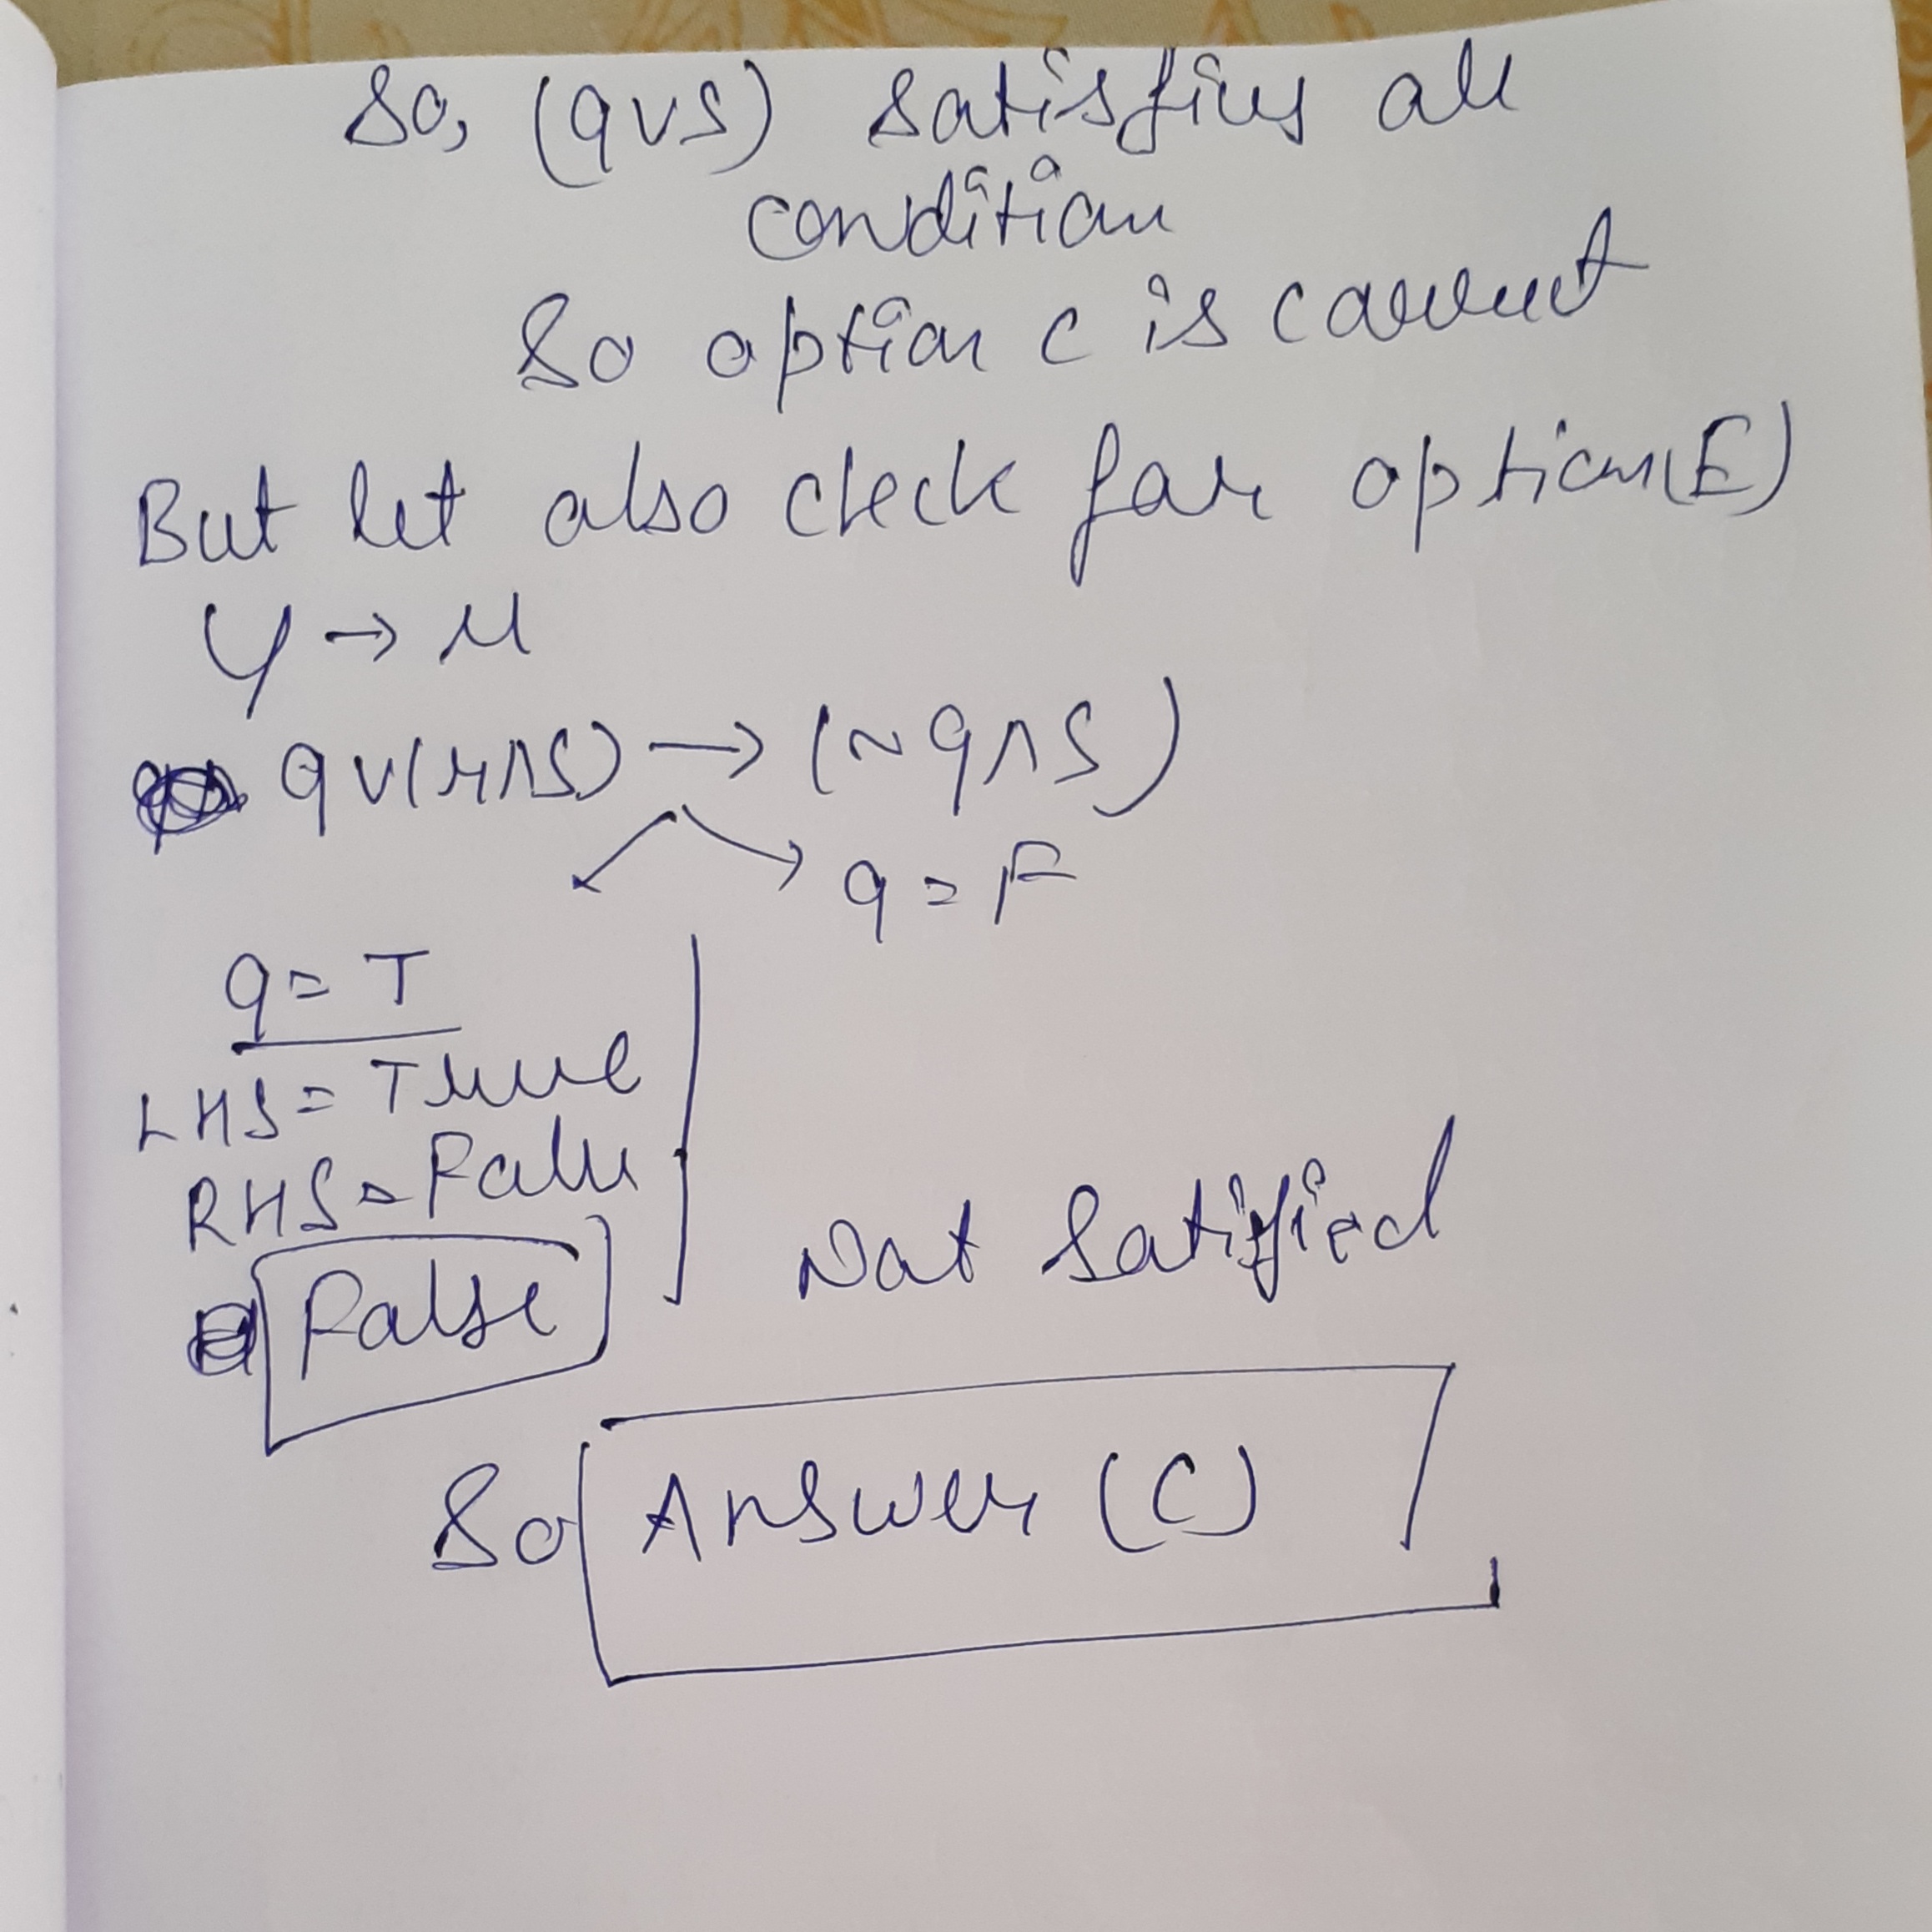 So, (q∨s) satisfies all
condition
So option c is correct
But let also check for option(E)
y → x
q ∨(r∧s) → (~q∧s)
q = F
q = T
LHS = True
RHS = False
False
Not Satisfied
So Answer (C)